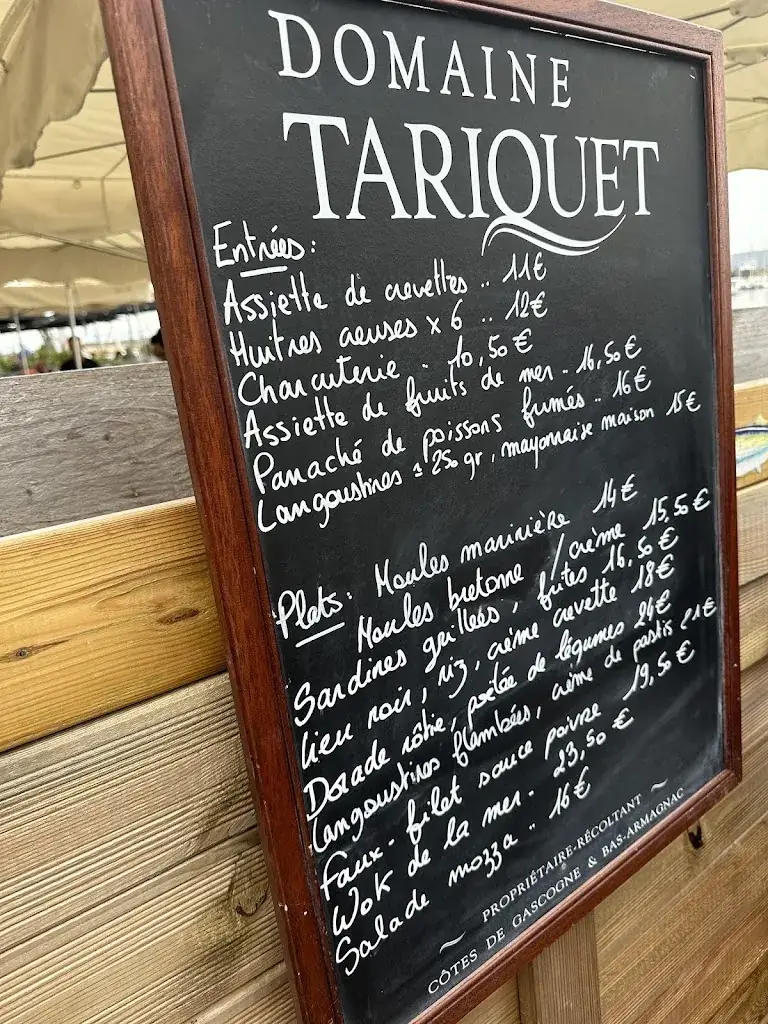 DOMAINE
TARIQUET
Entrées :
Assiette de crevettes .. 11€
Huitres creuses x 6 .. 12€
Charcuterie .. 10,50€
Assiette de fruits de mer .. 16,50€
Panaché de poissons fumés .. 16€
Langoustines ± 250 gr, mayonnaise maison 15€
Plats : Moules marinière 14€
Moules bretonne / crème 15,50€
Sardines grillées, frites 16,50€
Lieu noir, riz, crème crevette 18€
Dorade rôtie, poêlée de légumes 24€
Langoustines flambées, crème de pastis 21€
Faux-filet sauce poivre 19,50€
Wok de la mer . 23,50€
Salade mozza .. 16€
~ PROPRIÉTAIRE-RÉCOLTANT ~
CÔTES DE GASCOGNE & BAS-ARMAGNAC